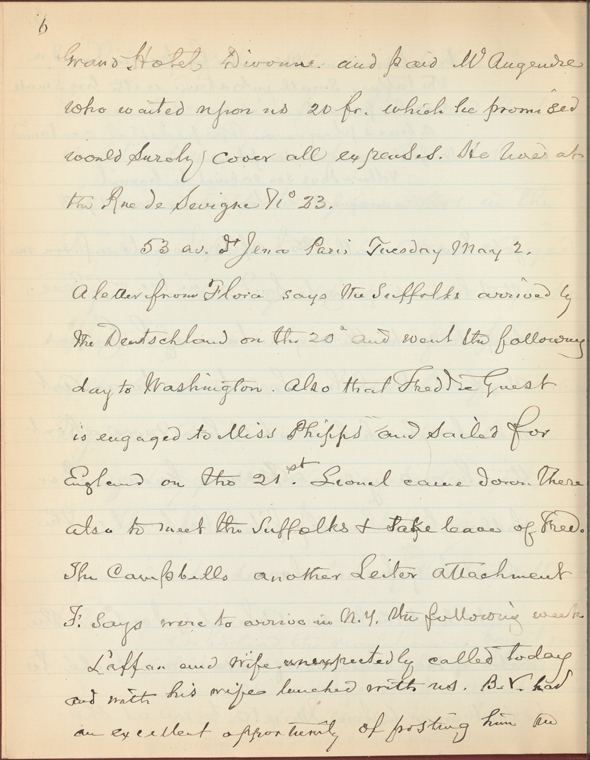 6
Grand Hotel, Divonne. and paid Mr Augendre
who waited upon us 20 fr. which he promised
would surely cover all expenses. He lives at
the Rue de Sevigne No 23.
53 av. d'Jena Paris Tuesday May 2.
A letter from Flora says the Suffolks arrived by
the Deutschland on the 20th and went the following
day to Washington. Also that Freddie Guest
is engaged to Miss Phipps and sailed for
England on the 21st. Lionel came down there
also to meet the Suffolks & take leave of Fred.
The Campbells another Leiter attachment
F. says were to arrive in N.Y. the following week
Laffan and wife unexpectedly called today
and with his wife lunched with us. B.V. had
an excellent opportunity of posting him on